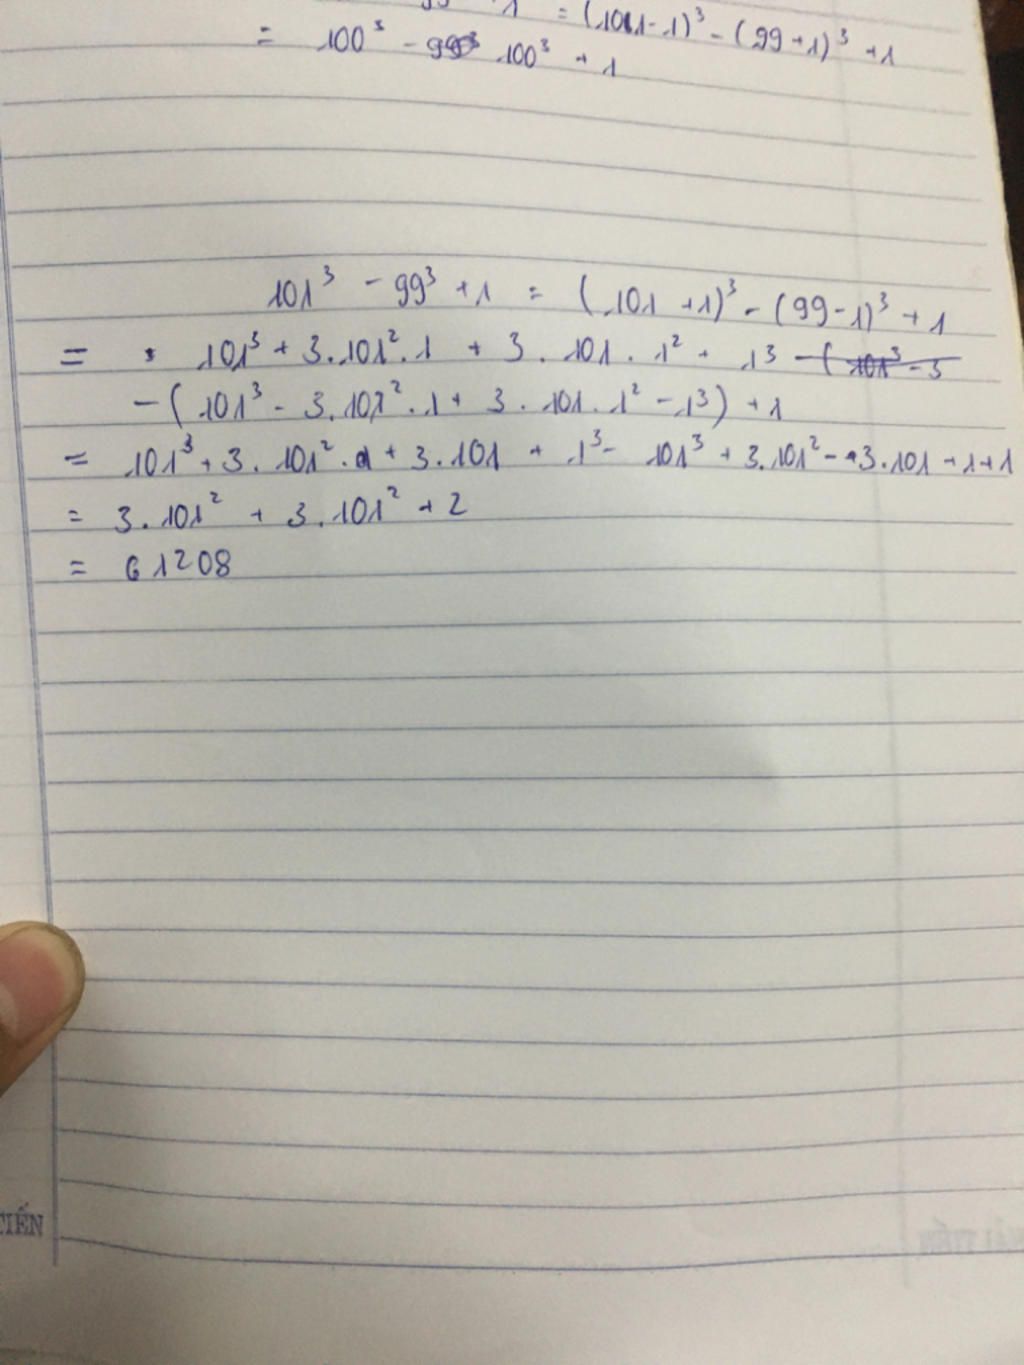 1 = (101-1)³ - (99+1)³ + 1
= 100³ - 100³ + 1
101³ - 99³ + 1 = (101 + 1)³ - (99 - 1)³ + 1
= 101³ + 3.101².1 + 3.101.1² + 1³ - (101³ - 3
- (101³ - 3.101².1 + 3.101.1² - 1³) + 1
= 101³ + 3.101².1 + 3.101 + 1³ - 101³ + 3.101² - 3.101 + 1 + 1
= 3.101² + 3.101² + 2
= 61208
TIẾN